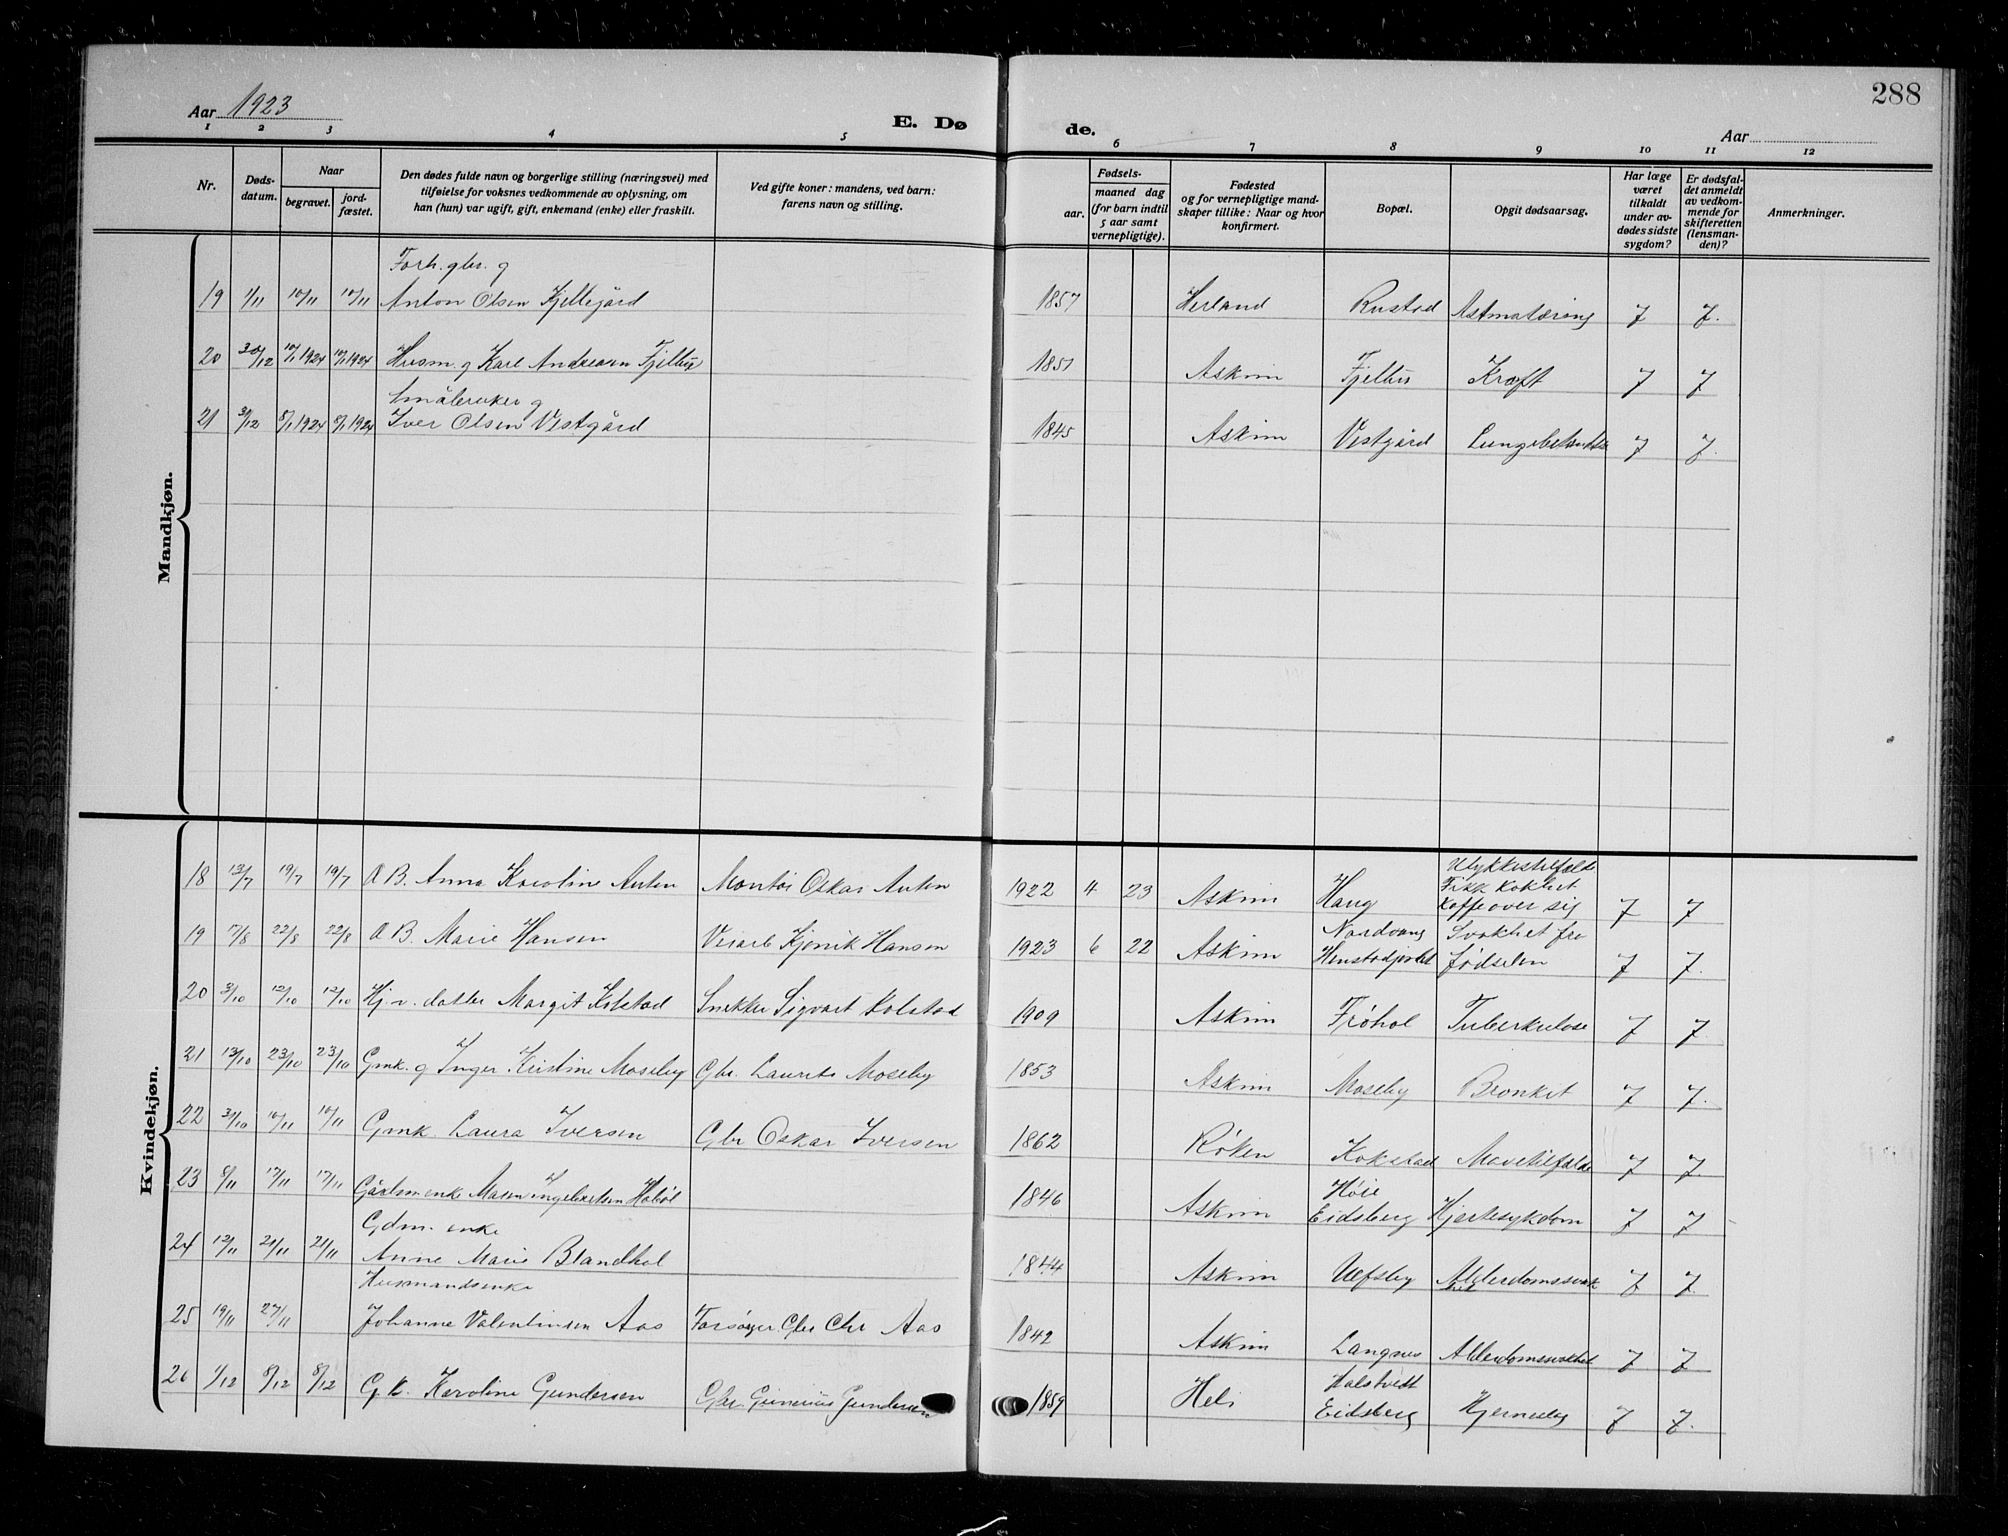 288
Aar 1923
E. Døde.
Aar
1 2 3 4 5 6 7 8 9 10 11 12
Nr.
Døds-datum.
Naar
begravet.
jord-fæstet.
Den dødes fulde navn og borgerlige stilling (næringsvei) med
tilføielse for voksnes vedkommende av oplysning, om
han (hun) var ugift, gift, enkemand (enke) eller fraskilt.
Ved gifte koner: mandens, ved barn:
farens navn og stilling.
Fødsels-
aar.
maaned dag
(for barn indtil
5 aar samt
vernepligtige).
Fødested
og for vernepligtige mand-
skaper tillike: Naar og hvor
konfirmert.
Bopæl.
Opgit dødsaarsag.
Har læge
været
tilkaldt
under av-
dødes sidste
sygdom?
Er dødsfal-
det anmeldt
av vedkom-
mende for
skifteretten
(lensman-
den)?
Anmerkninger.
Mandkjøn.
Forh. gbr. g
19 1/11 10/11 10/11 Anton Olsen Kjellegård 1857 Herland Rustad Astmatæring J J.
20 30/12 10/1 1924 10/1 1924 Husm. g Karl Andresen Fjellus 1851 Askim Fjellus Kræft J J
Småbruker g
21 31/12 8/1 1924 8/1 1924 Iver Olsen Vestgård 1845 Askim Vestgård J J.
Kvindekjøn.
Ulykkestilfælde
18 13/7 19/7 19/7 A B. Anna Karoline Anten Montør Oskar Anten 1922 4 23 Askim Haug Fikk kokhet
Kaffe over sig J J
19 17/8 22/8 22/8 A B. Marie Hansen Kjønik Hansen 1923 6 22 Askim Nordvang Svakhet fra
fødselen J J.
20 3/10 12/10 12/10 Hj. v. datter Margit Kolstad Snekker Sigvart Kolstad 1909 Askim Frøhol Tuberkulose J J.
21 13/10 23/10 23/10 Gmk. g Inger Kristine Moseby Gbr. Laurits Moseby 1853 Askim Moseby Bronkit J J.
22 31/10 10/11 10/11 Gmk. Laura Iversen Gbr Oskar Iversen 1862 Røken Kokstad Mavetilfælde J J.
23 8/11 17/11 17/11 Gårdsm enke Maren Ingebretsen Habøl 1846 Askim Høie
Eidsberg Hjertesykdom J J
Gdm. enke
24 12/11 21/11 21/11 Anne Marie Brandhol 1844 Askim Ulfsby Alderdomssvakhet J J.
Husmandsenke
25 19/11 27/11 Johanne Valentinsen Aas Forsørger Gbr Chr Aas 1842 Askim Langnes Alderdomssvakhet J J
26 1/12 8/12 8/12 G.k. Karoline Gundersen Gbr. Gunerius Gundersen 1859 Heli Halstvedt
Eidsberg Hjerneslag J J.